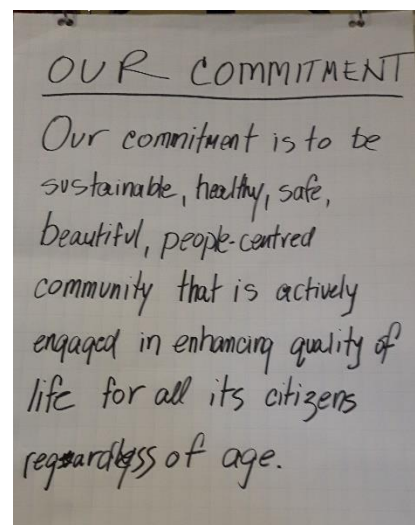 OUR COMMITMENT
Our commitment is to be
sustainable, healthy, safe,
beautiful, people-centred
community that is actively
engaged in enhancing quality of
life for all its citizens
regardless of age.